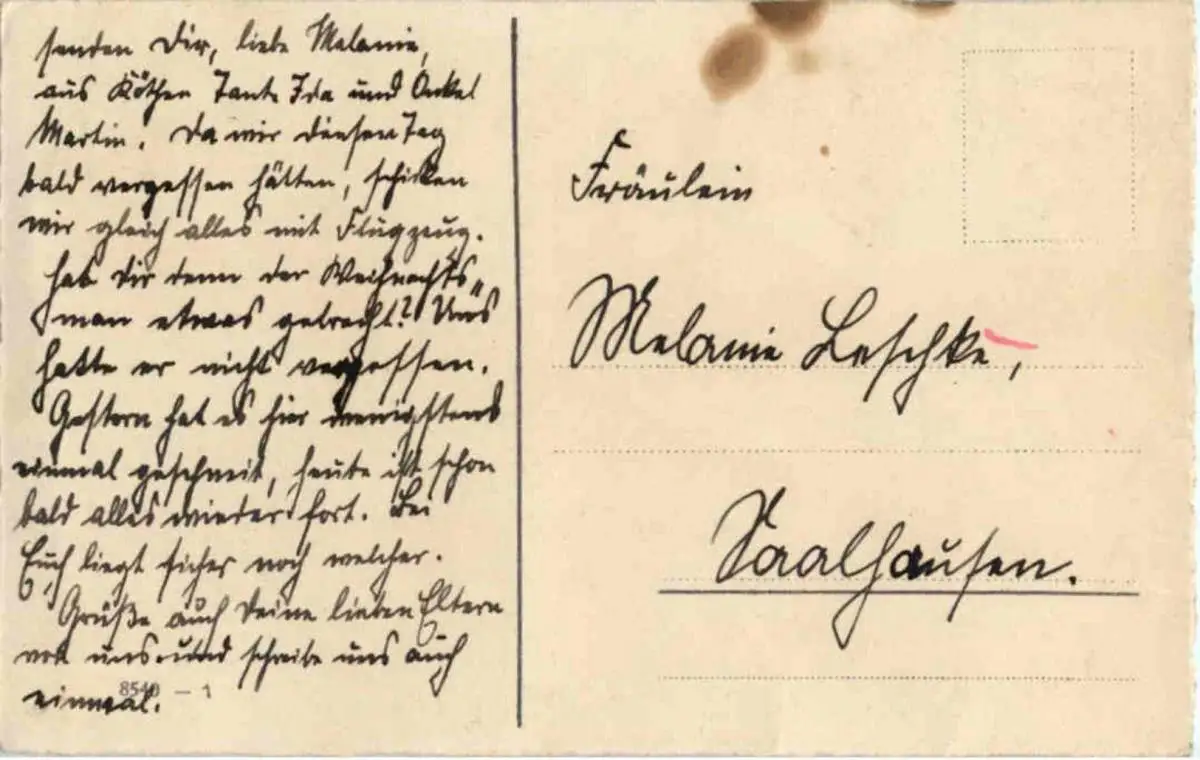 senden Dir, liebe Melanie,
aus Köthen Tante Ida und Onkel
Martin. Da wir diesen Tag
bald vergessen hätten, schicken
wir gleich alles mit Flugzeug.
Hab Dir denn der Weihnachts„
man etwas gebracht? Uns
hatte er nicht vergessen.
Gestern hat es hier wenigstens
einmal geschneit, heute ist schon
bald alles wieder fort. Bei
Euch liegt sicher noch welcher.
Grüße auch Deine lieben Eltern
von uns und schreibe uns auch
einmal.
8540 - 1
Fräulein
Melanie Leschke,
Saalhausen.